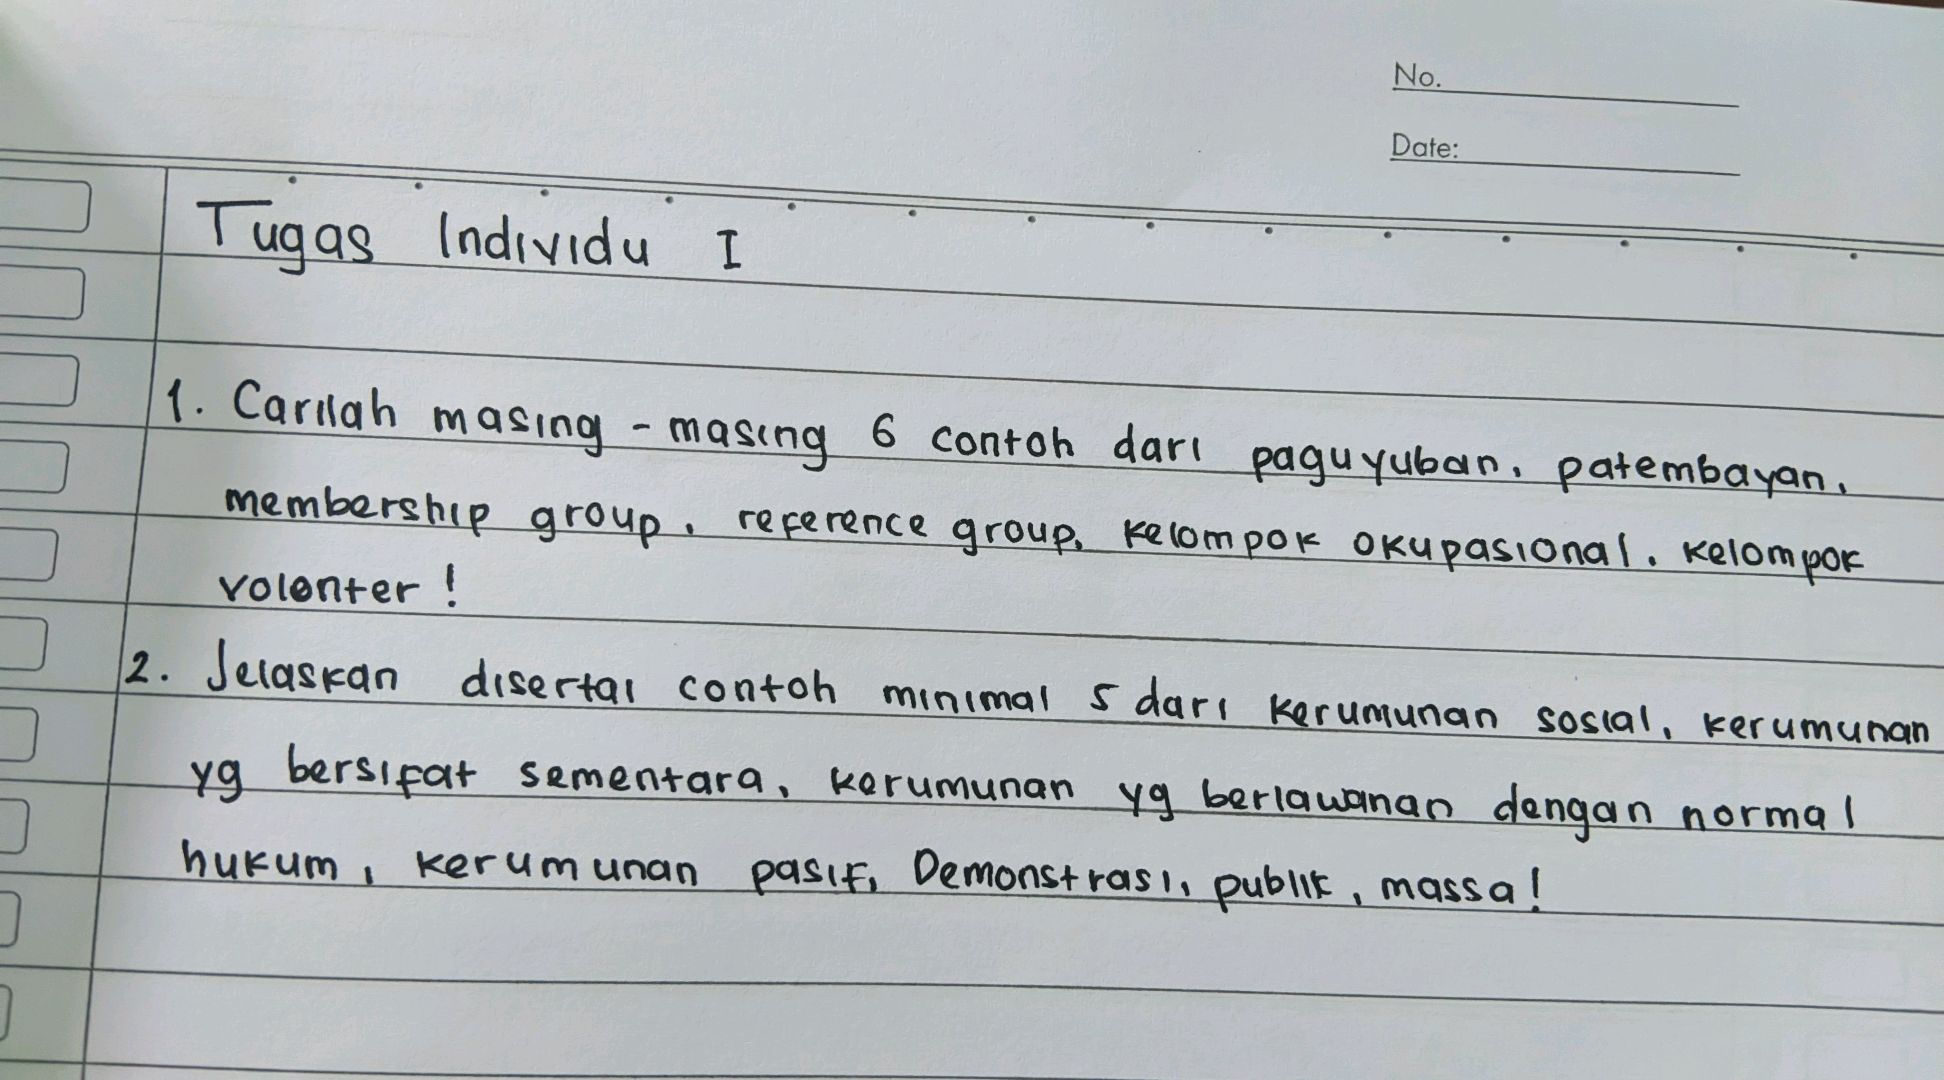 No.
Date:
Tugas Individu I
1. Carilah masing - masing 6 contoh dari paguyuban, patembayan,
membership group, reference group, kelompok okupasional, kelompok
volonter !
2. Jelaskan disertai contoh minimal 5 dari kerumunan sosial, kerumunan
yg bersifat sementara, kerumunan yg berlawanan dengan normal
hukum, kerumunan pasif, Demonstrasi, publik, massa!